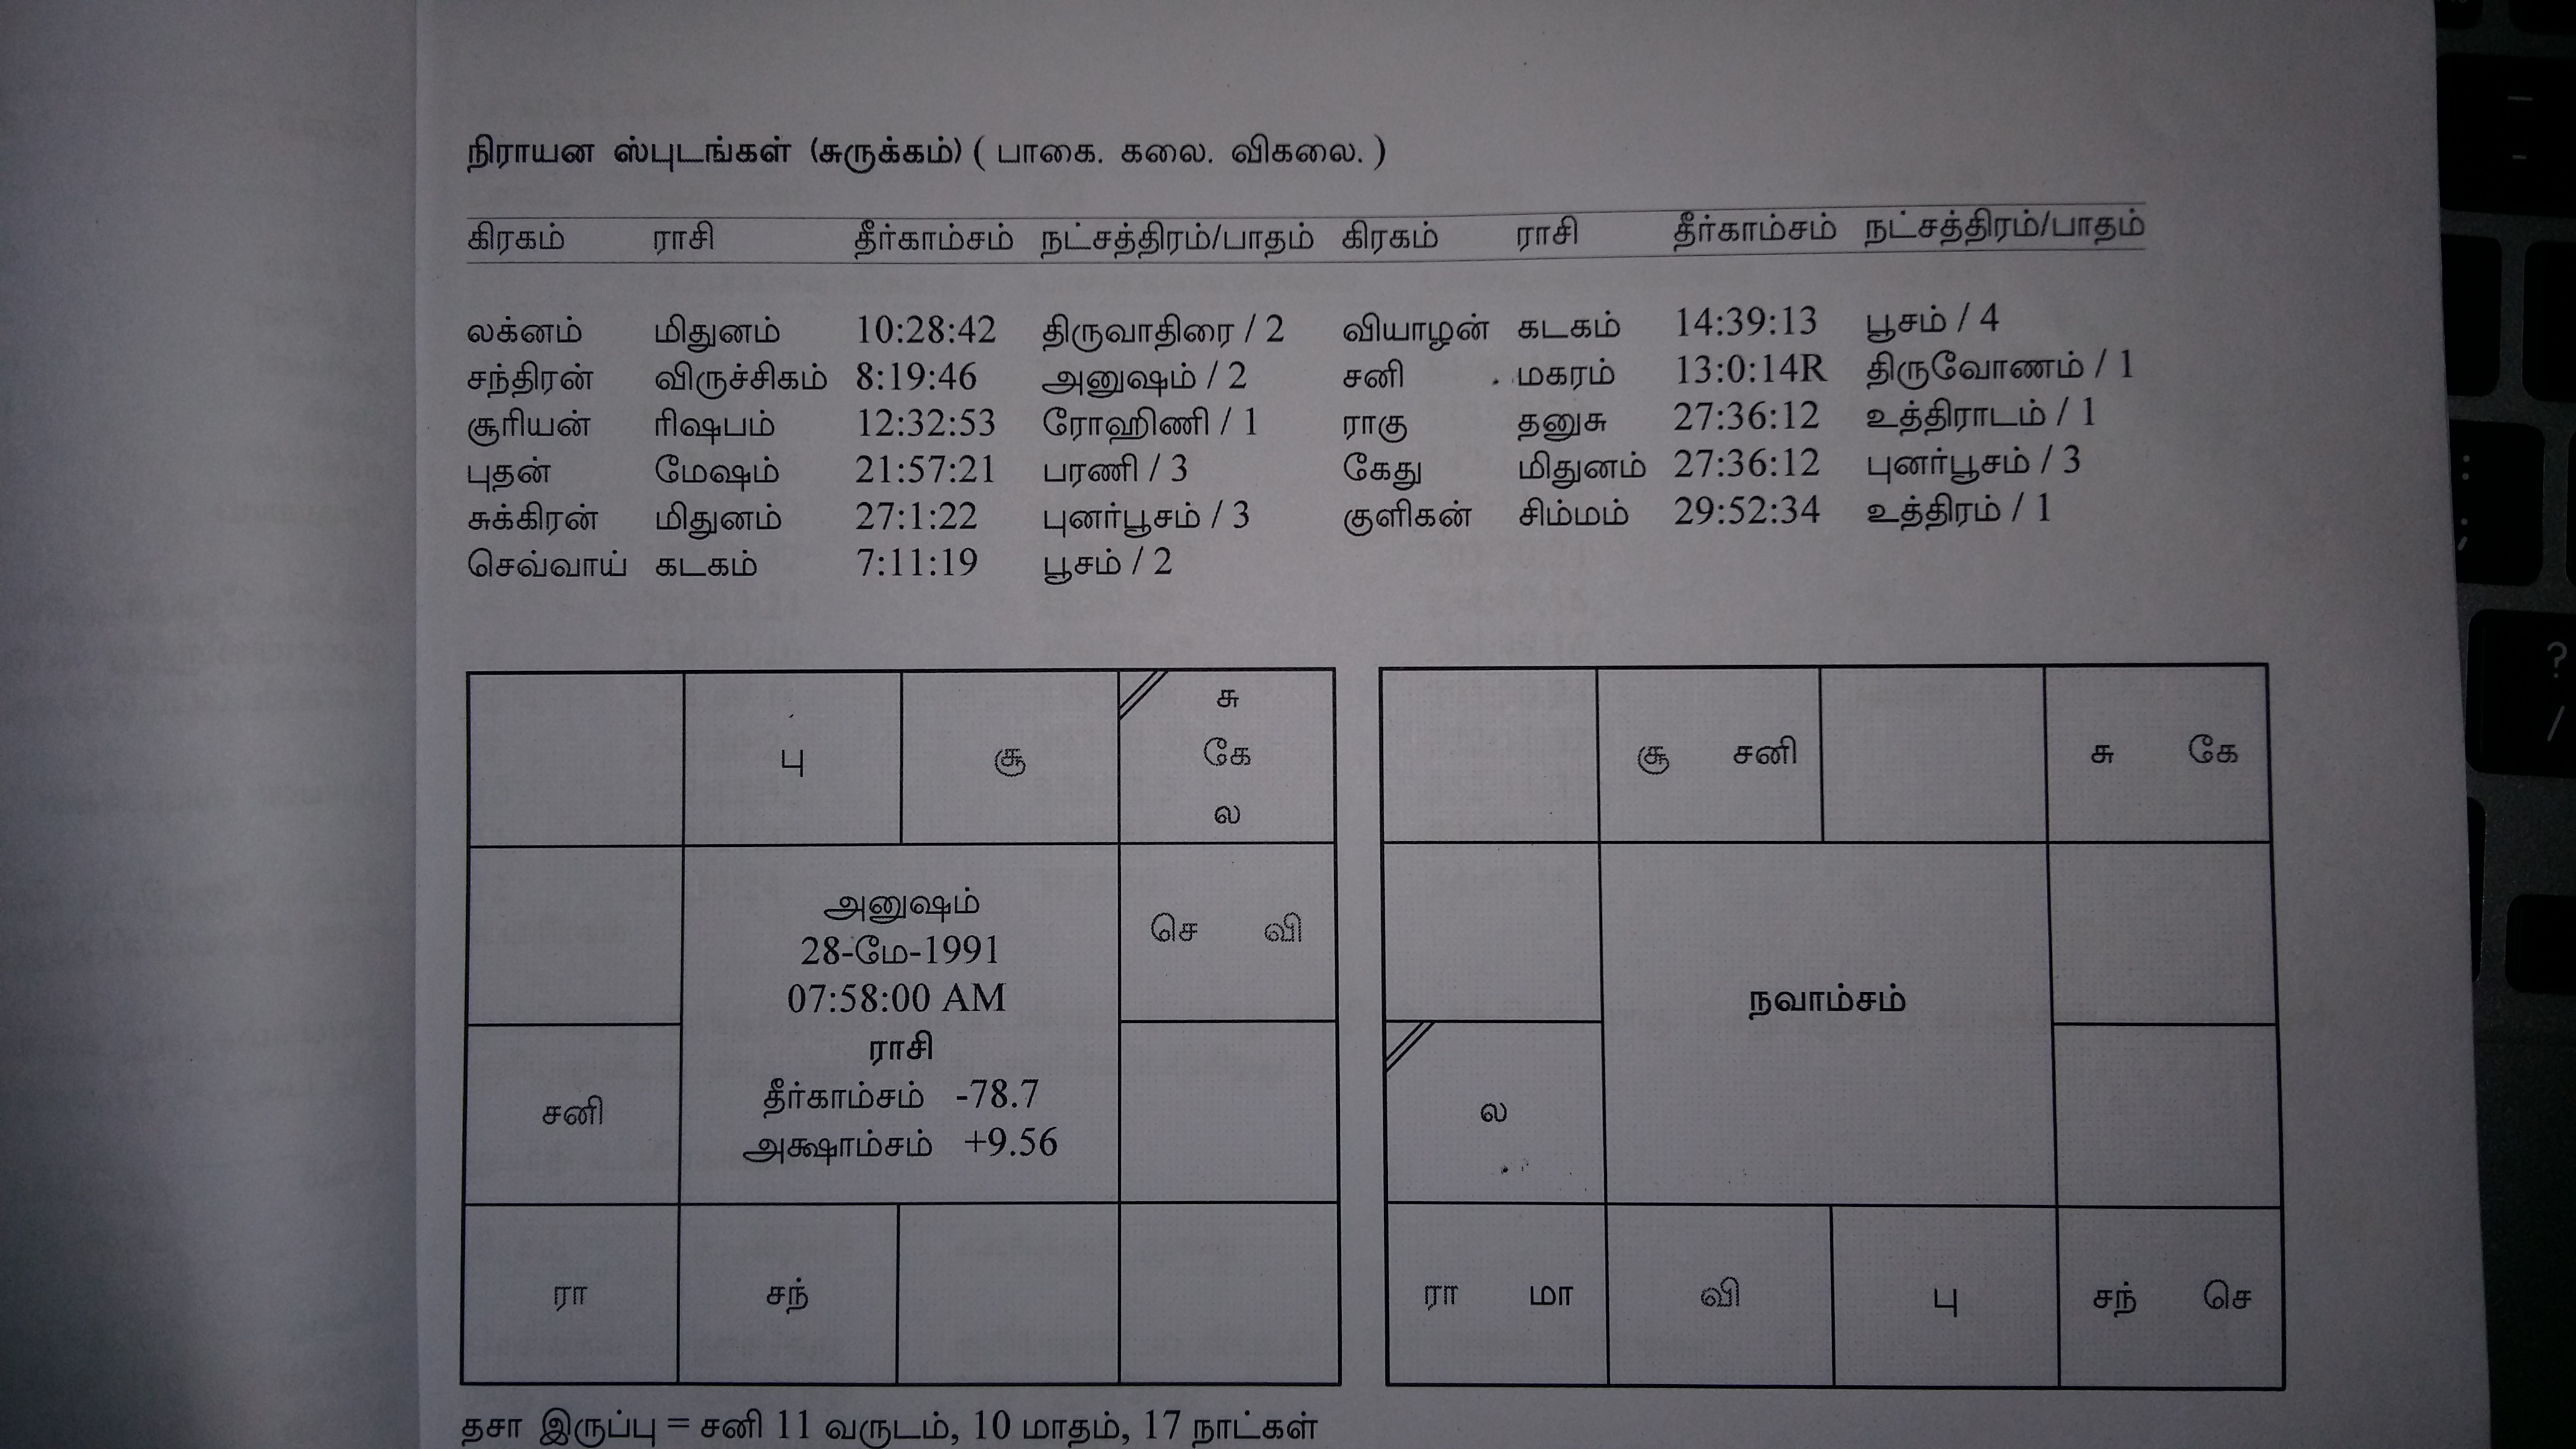 நிராயன ஸ்புடங்கள் (சுருக்கம்) ( பாகை. கலை. விகலை. )
கிரகம் ராசி தீர்காம்சம் நட்சத்திரம்/பாதம் கிரகம் ராசி தீர்காம்சம் நட்சத்திரம்/பாதம்
லக்னம் மிதுனம் 10:28:42 திருவாதிரை / 2 வியாழன் கடகம் 14:39:13 பூசம் / 4
சந்திரன் விருச்சிகம் 8:19:46 அனுஷம் / 2 சனி மகரம் 13:0:14R திருவோணம் / 1
சூரியன் ரிஷபம் 12:32:53 ரோஹிணி / 1 ராகு தனுசு 27:36:12 உத்திராடம் / 1
புதன் மேஷம் 21:57:21 பரணி / 3 கேது மிதுனம் 27:36:12 புனர்பூசம் / 3
சுக்கிரன் மிதுனம் 27:1:22 புனர்பூசம் / 3 குளிகன் சிம்மம் 29:52:34 உத்திரம் / 1
செவ்வாய் கடகம் 7:11:19 பூசம் / 2
பு சூ சு
கே
ல
செ வி
அனுஷம்
28-மே-1991
07:58:00 AM
ராசி
தீர்காம்சம் -78.7
அக்ஷாம்சம் +9.56
சனி
ரா சந்
சூ சனி சு கே
நவாம்சம்
ல
ரா மா வி பு சந் செ
தசா இருப்பு = சனி 11 வருடம், 10 மாதம், 17 நாட்கள்
? 
/
:
;